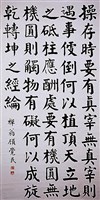 操存時要有真宰無真宰則
遇事便倒何以植頂天立地
之砥柱應用時要有圓機無
圓機則觸物有礙何以成旋
乾轉坤之經綸